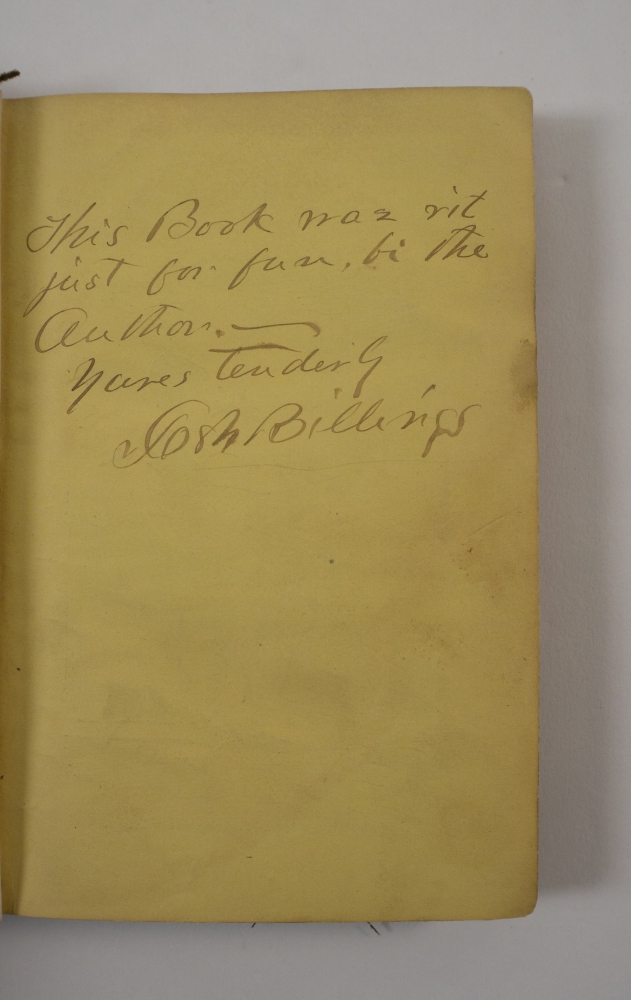 This Book waz rit
just for fun, bi the
Author. —
Yures tenderly
Josh Billings